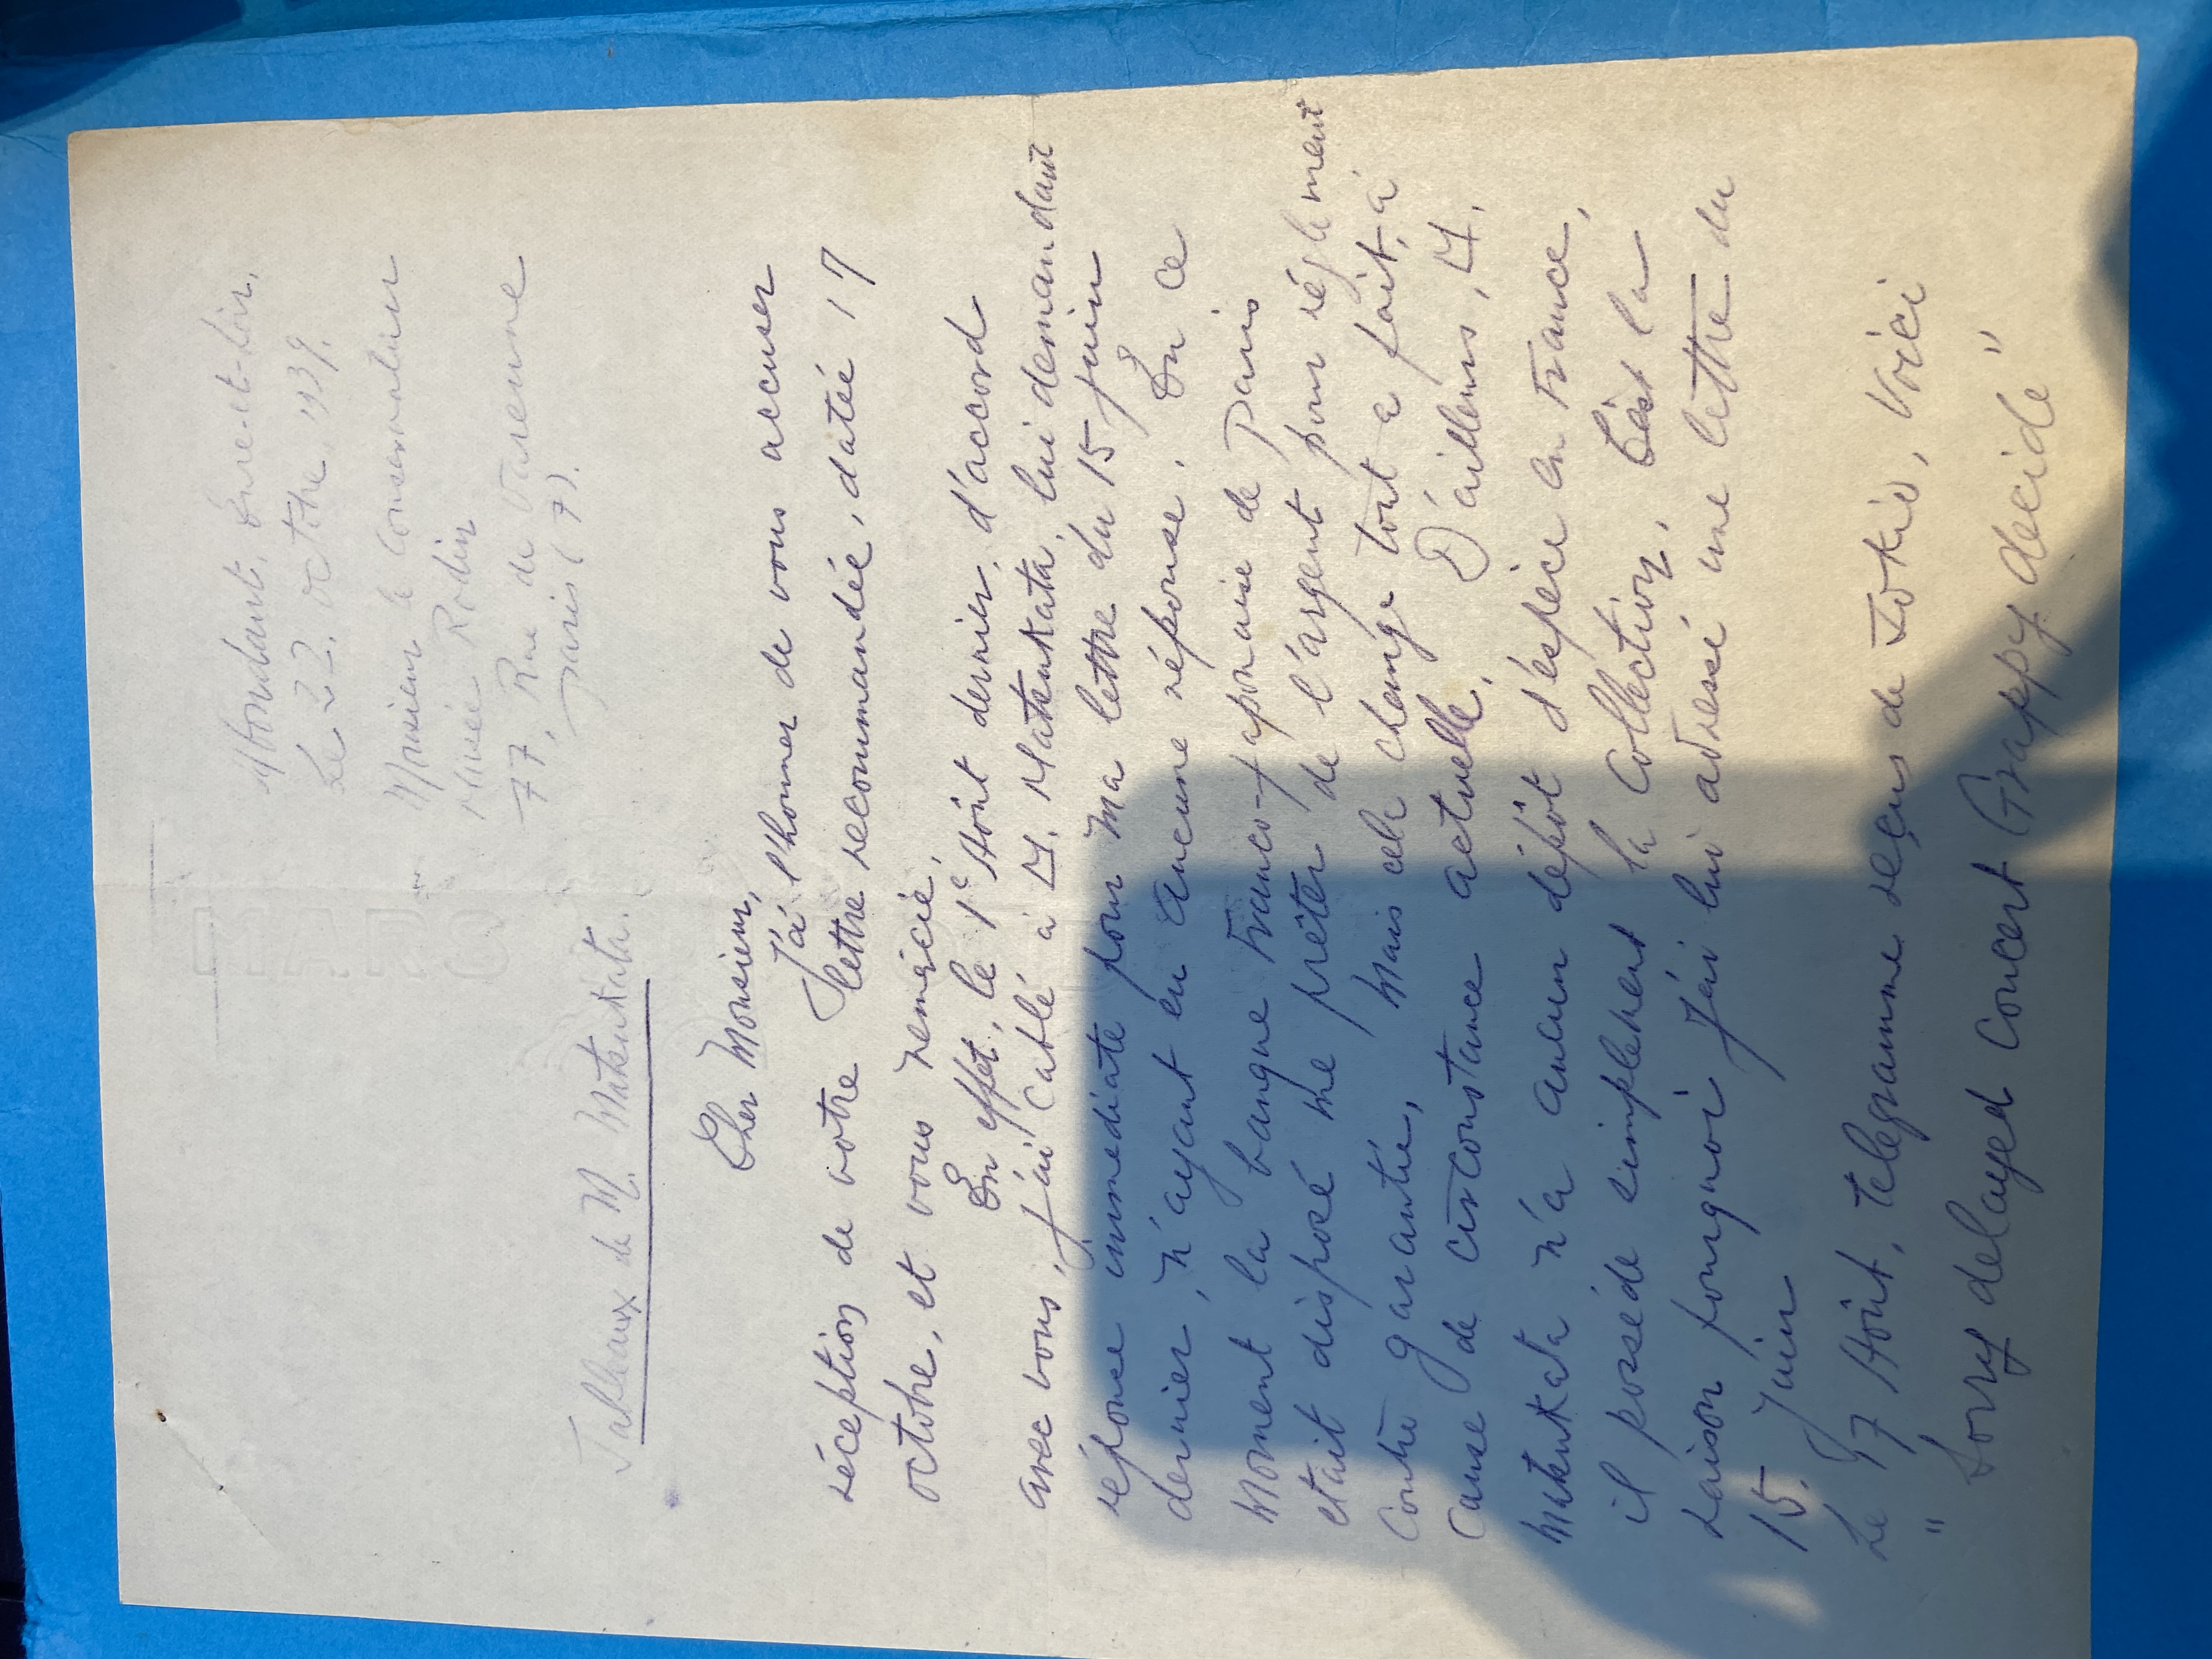 Abondant, Eure-et-Loir,
Le 22. octobre 1939.
Monsieur le Conservateur
Musée Rodin
77, Rue de Varenne
Paris (7).
Tableaux de M. Matsukata.
Cher Monsieur,
J'ai l'honner de vous accuser
réception de votre lettre recommandée, datée 17
octobre, et vous remercié.
En effet, le 1e Août dernier, d'accord
avec vous, j'ai cablé à M. Matsukata, lui demandant
réponse immédiate pour ma lettre du 15 juin
dernier, n'ayant eu aucune réponse. En ce
moment la banque Franco-japonaise de Paris
etait disposé me prêter de l'argent pour réglement
contre garantie, mais cela change tout a fait, à
cause de circonstance actuelle. D'ailleurs, M.
Matsukata n'a aucun dépôt d'espéce en France,
il posséde simplement la Collection, C'est la
raison pourquoi j'ai lui adressé une lettre du
15. Juin
Le 17 Août, telegramme reçus de Tokio, Voici
" Sorry delayed concert Grappy decide "